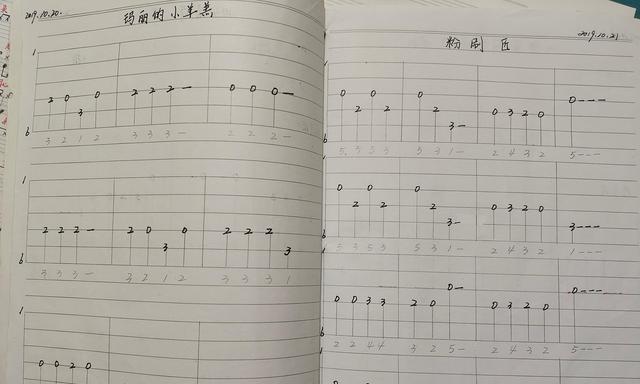 2019.10.20.
玛丽的小羊羔
1
2 0 3 0 2 2 2 — 0 0 0 —
6
3 2 1 2 3 3 3 — 2 2 2 —
1
2 2 2 — 2 0 3 0 2 2 2 3
6
3 3 3 — 3 2 1 2 3 3 3 1
1
0 0 2 0
粉刷匠
2019.10.21
0 2 0 2 0 2 3 — 0 3 2 0 0 — — —
6
5 3 5 3 5 3 1 — 2 4 3 2 5 — — —
0 2 0 2 0 2 3 — 0 3 2 0 3 — — —
6
5 3 5 3 5 3 1 — 2 4 3 2 1 — — —
0 0 3 3 2 0 0 — 0 3 2 0 0 — — —
6
2 2 4 4 3 2 5 — 2 4 3 2 5 — — —